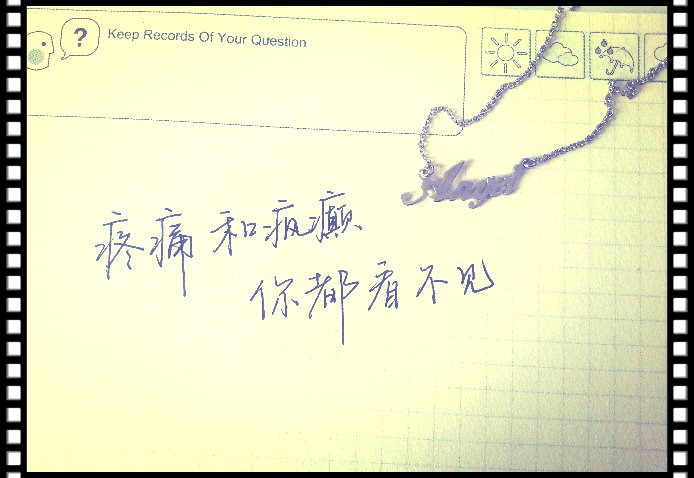 ?
Keep Records Of Your Question
Angel
疼痛和疯癫
你都看不见